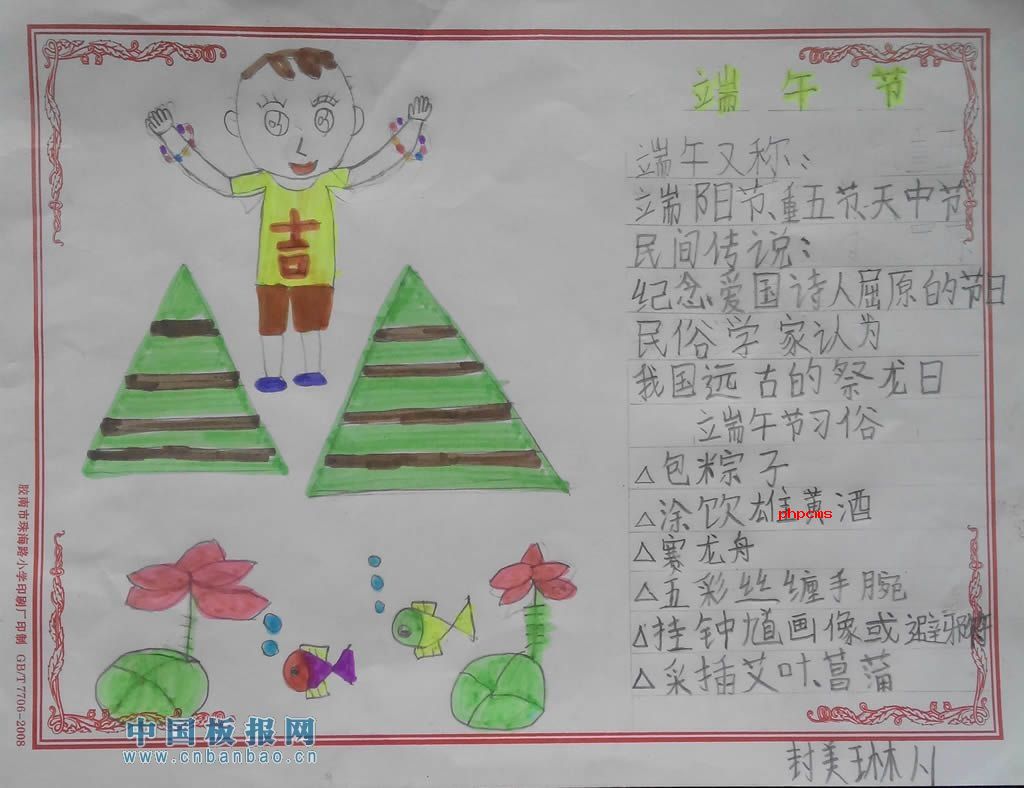 端午节
端午又称：
端阳节、重五节、天中节
民间传说：
纪念爱国诗人屈原的节日
民俗学家认为
我国远古的祭龙日
端午节习俗
△包粽子
△涂饮雄黄酒
phpcms
△赛龙舟
△五彩丝缠手腕
△挂钟馗画像或避邪符
△采插艾叶、菖蒲
吉
胶南市珠海路小学印刷厂印制 GB/T 7706-2008
中国板报网
www.cnbanbao.cn
封美琳